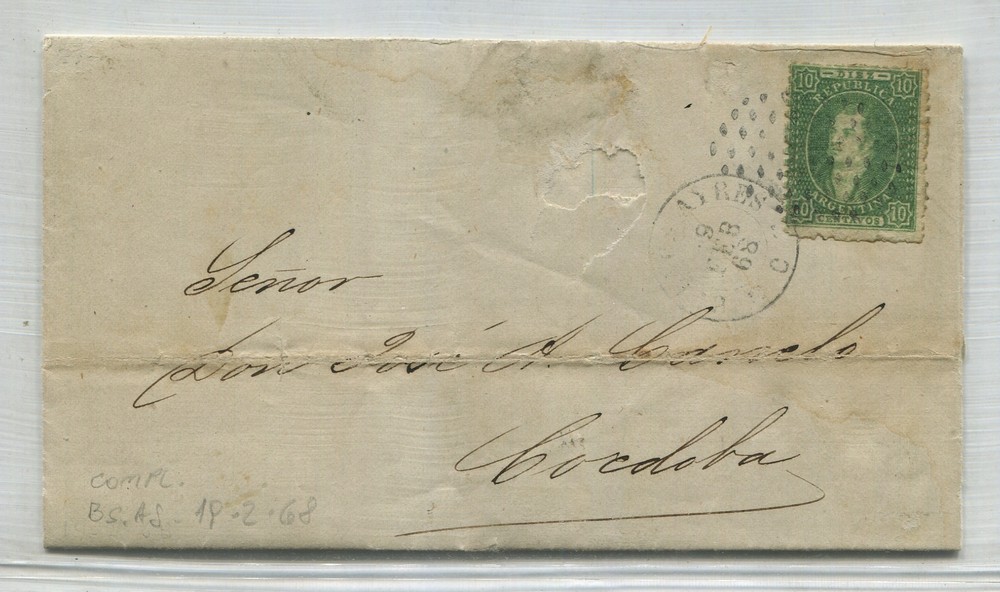 10 DIEZ 10
REPUBLICA
ARGENTINA
10 CENTAVOS 10
AYRES
FEB
68
Señor
Don José A.
Cordoba
COMPL.
BS.AS. 19.2.68